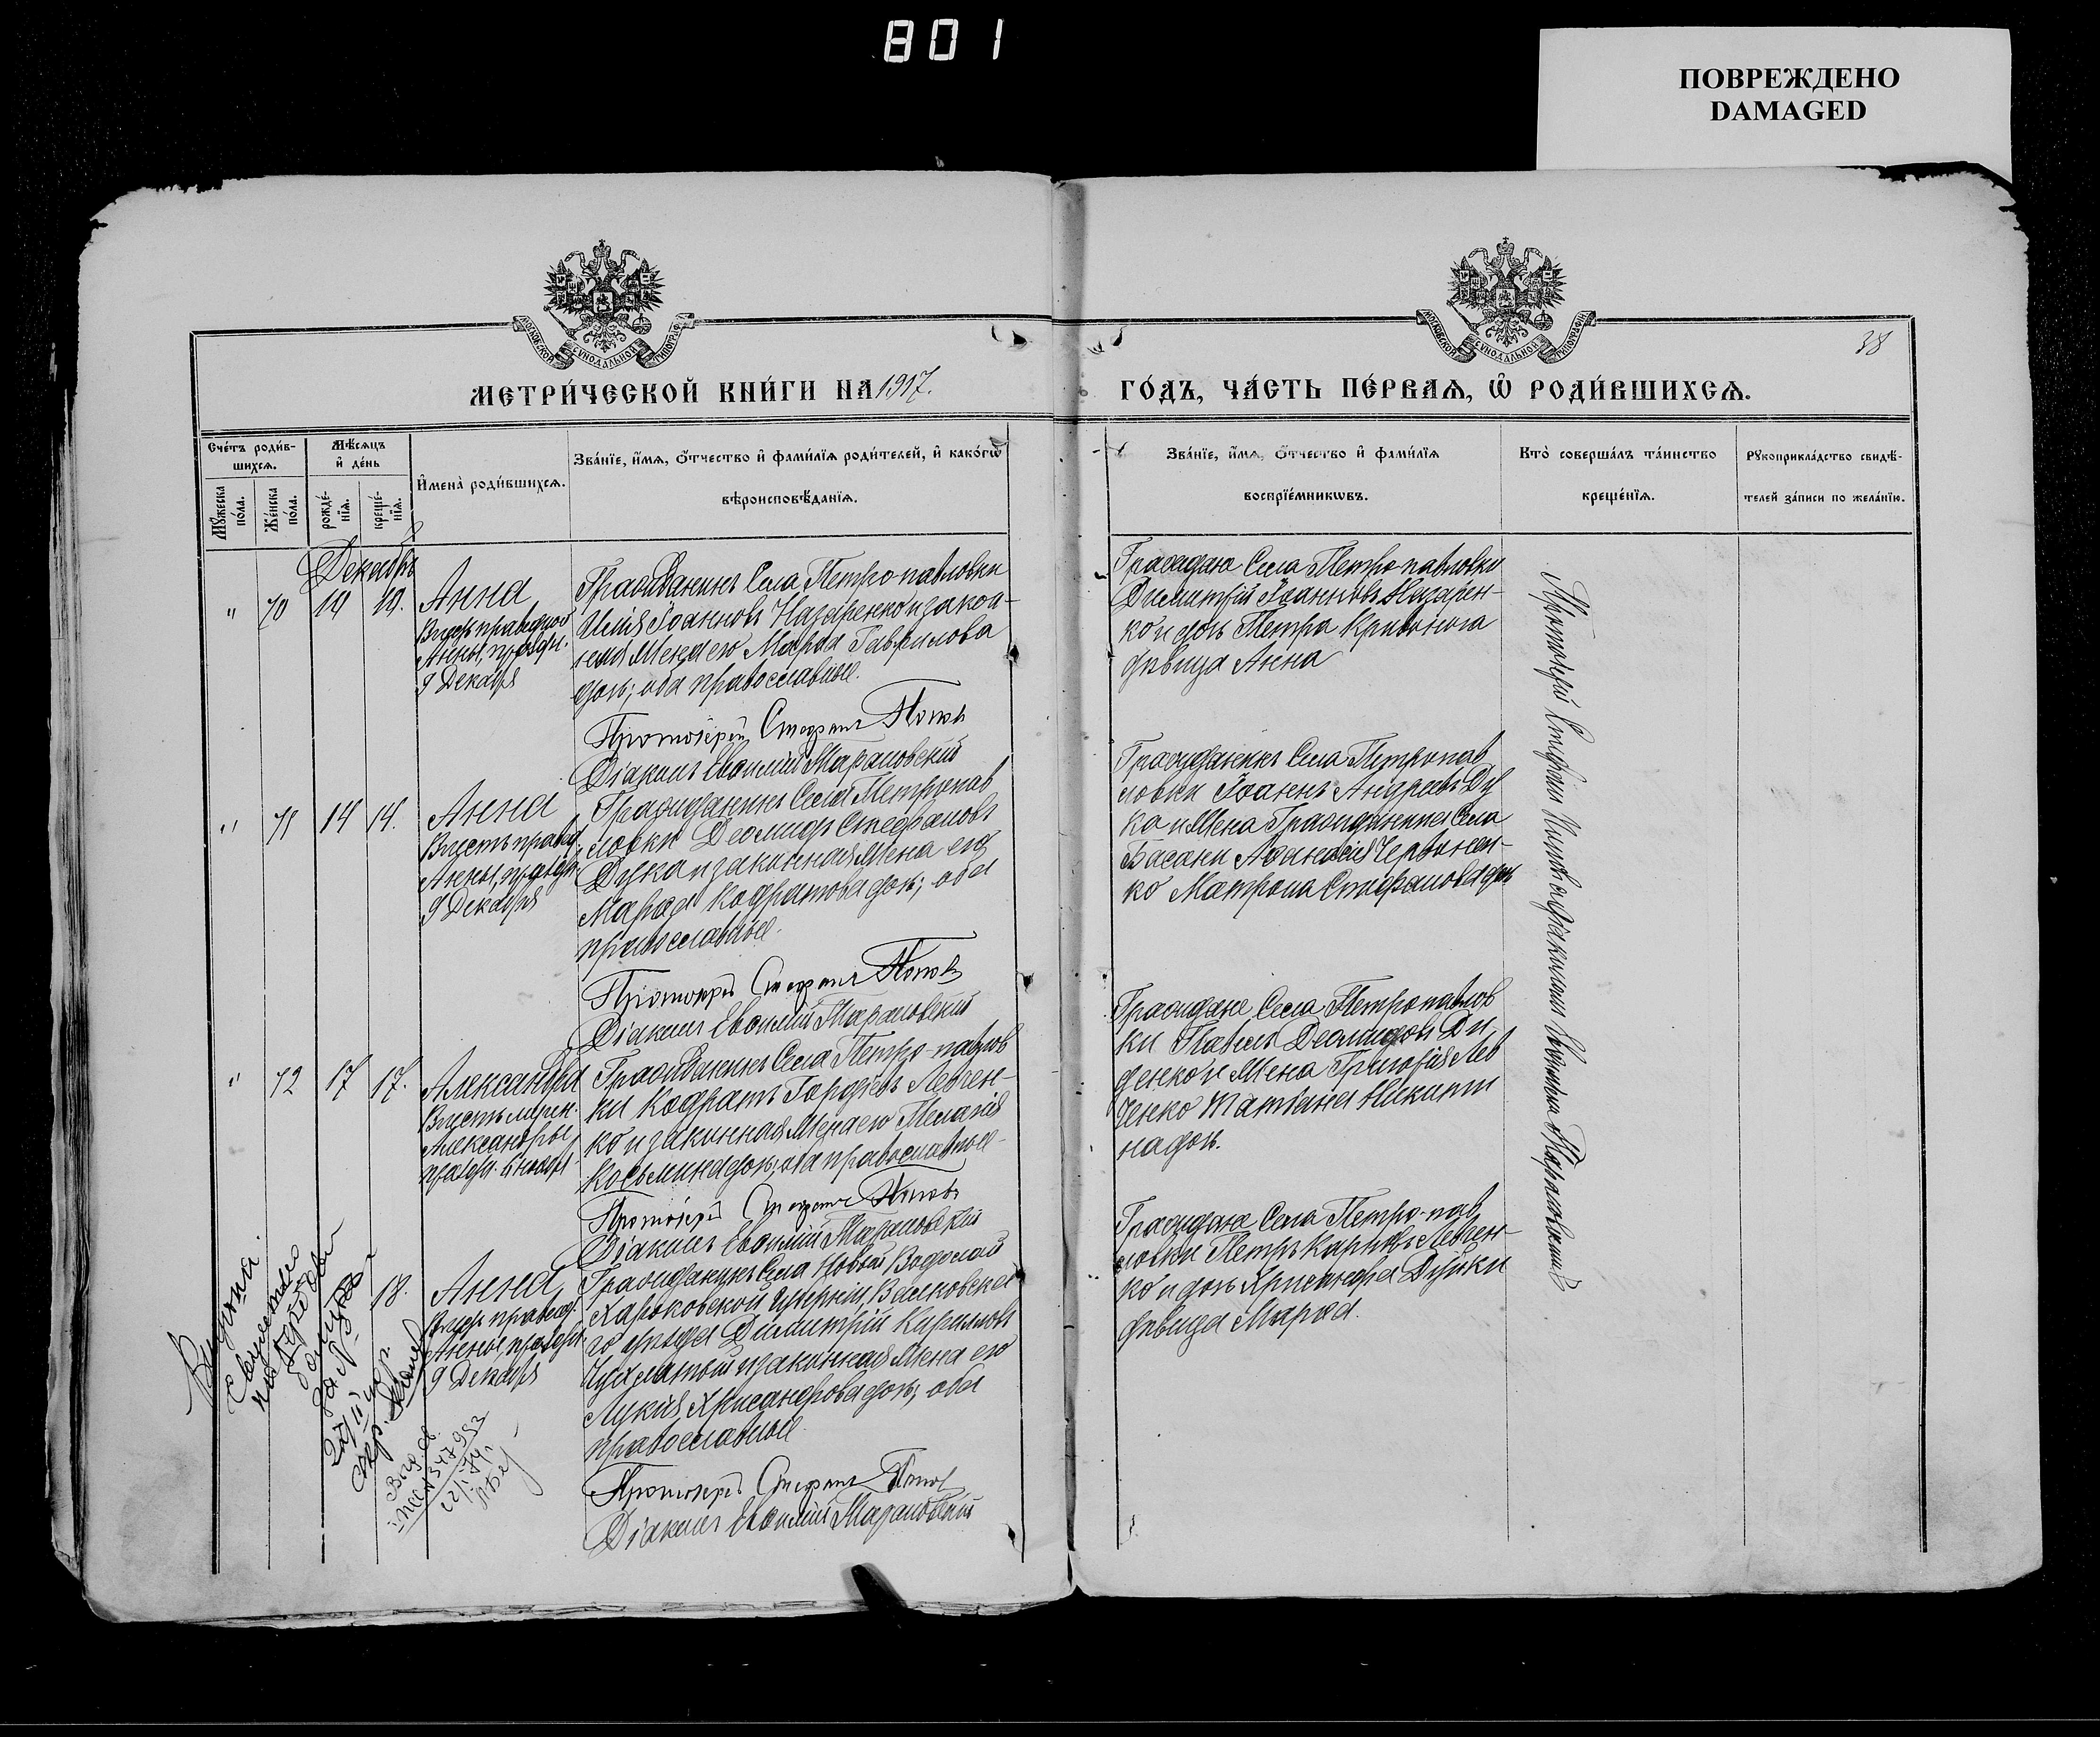 801
ПОВРЕЖДЕНО
DAMAGED
МОСКОВСКОЙ СѴНОДАЛЬНОЙ ТИПОГРАФІИ
МОСКОВСКОЙ СѴНОДАЛЬНОЙ ТИПОГРАФІИ
38
МЕТРИ́ЧЕСКОЙ КНИ́ГИ НА 1917.
ГО́ДЪ, ЧА́СТЬ ПЕ́РВАЯ, Ѿ РОДИ́ВШИХСЯ.
Счетъ роди́в-
шихся.
Мꙋжеска по́ла.
Же́нска по́ла.
Мѣсяцъ
и҆ де́нь
рожде́-
нїя.
креще́-
нїя.
И҆мена̀ роди́вшихся.
Зва́нїе, и҆́мя, о҆́тчество и҆ фами́лїя роди́телей, и҆ како́гѡ
вѣроисповѣ́данїя.
Зва́нїе, и҆́мя, о҆́тчество и҆ фами́лїя
воспрїе́мникѡвъ.
Кто̀ соверша́лъ та́инство
креще́нїя.
Рꙋкоприкла́дство свидѣ́-
телей за́писи по жела́нїю.
Декабрь
" 70 14 19.
Анна
Въ честь праведной
Анны, праздн.
9 Декабря
Гражданинъ Села Петро-павловки
Илія Іоанновъ Назаренко и закон-
ная жена его Марѳа Гаврилова
дочь; оба православные.
Протоіерей Стефанъ Поповъ
Діаконъ Евѳимій Марановскій
Граждане Села Петро-павловки
Димитрій Іоанновъ Назарен-
ко и дочь Петра Кривонога
дѣвица Анна
" 71 14 14.
Анна
Въ честь правед
Анны, праздн.
9 Декабря
Гражданинъ Села Петропав
ловки Деомидъ Стефановъ
Дука и законная жена его
Марѳа Кодратова дочь; оба
православные.
Протоіерей Стефанъ Поповъ
Діаконъ Евѳимій Марановскій
Гражданинъ Села Петропав
ловки Іоаннъ Андреевъ Ду
ка и жена Гражданина Села
Басани Аѳанасія Червонен-
ко Матрона Стефанова дочь
" 72 17 17.
Александра
Въ честь мучен.
Александры,
праздн. 6 ноября
Гражданинъ Села Петро-павлов
ки Кодратъ Гордіевъ Левчен-
ко и законная жена его Мелагія
Косьмина дочь; оба православные
Протоіерей Стефанъ Поповъ
Діаконъ Евѳимій Марановскій
Граждане Села Петропавлов
ки Павелъ Деомидовъ Ди
денко и жена Григорія Лев
ченко Татіана Никити
на дочь.
18.
Анна
Въ честь правед.
Анны праздн.
9 Декабря
Гражданинъ Села Новой Водолаги
Харьковской губерніи, Валковска
го уѣзда Димитрій Кирилловъ
и законная жена его
Лукія Хрисанѳова дочь; оба
православные
Протоіерей Стефанъ Поповъ
Діаконъ Евѳимій Марановскій
Граждане Села Петро-пав
ловки Петръ Карповъ Левчен-
ко и дочь Хрисанѳа Дудки
дѣвица Марѳа.
Протоіерей Стефанъ Поповъ съ діакономъ Евѳиміемъ Марановскимъ